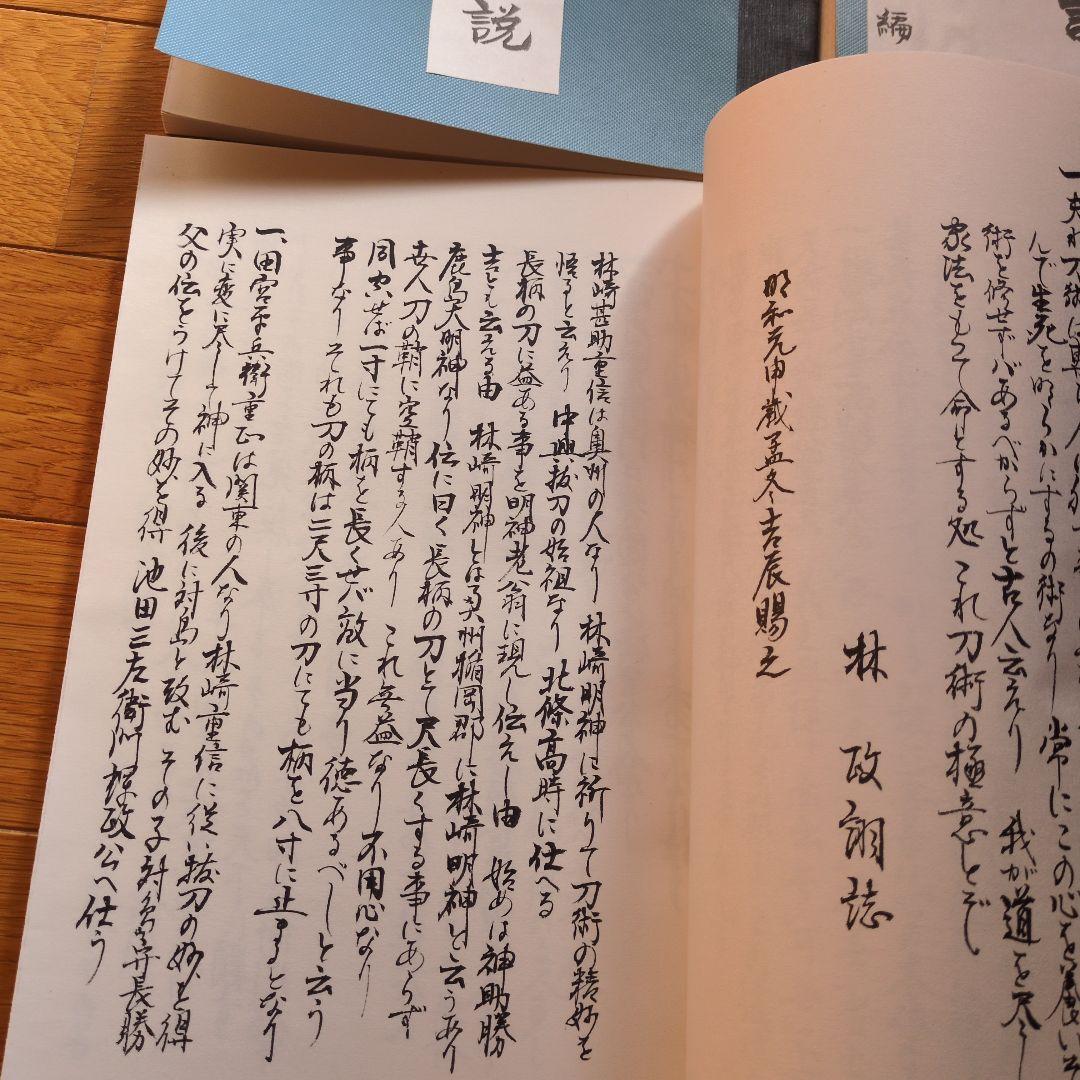 説
編
一夫れ刀術は
んで生死を明らかにするの術なり 常にこの心を養い
術を修せずバあるべからずと古人云えり 我が道を尽し
家法をもって命とする処 これ刀術の極意とぞし
林 政誌
明和元申歳孟冬吉辰賜之
林崎甚助重信は奥州の人なり 林崎明神に祈りて刀術の精妙を
悟ると云えり 中興抜刀の始祖なり 北條高時に仕へる
長柄の刀に益ある事を明神老翁に現し伝えし由 始めは神助勝
吉とも云える由 林崎明神とは奥州楯岡郡に林崎明神と云うあり
鹿島大明神なり 伝に曰く長柄の刀とて尺長くする事にあらず
世人刀の鞘に空鞘する人あり これ無益なり不用心なり
同寸せば一寸にても柄を長くせバ敵に当り徳あるべしと云う
事なり それも刀の柄は二尺三寸の刀にても柄を八寸に止まるとなり
一、田宮平兵衛重正は関東の人なり 林崎重信に従い抜刀の妙を得
実に変に尽しよ神に入る 後に対島と改む その子対島守長勝
父の伝をうけてその妙を得 池田三左衛門輝政公へ仕う